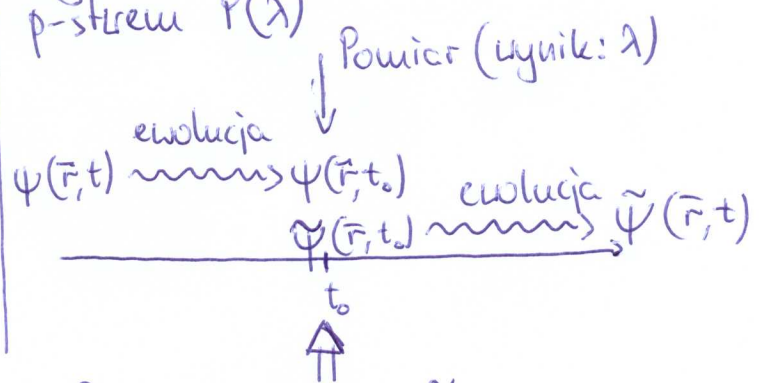 p-stwem P(λ)
Pomiar (wynik: λ)
ewolucja
ψ(r̄,t) ψ(r̄,t₀)
ewolucja
ψ̃(r̄,t₀) ψ̃(r̄,t)
t₀